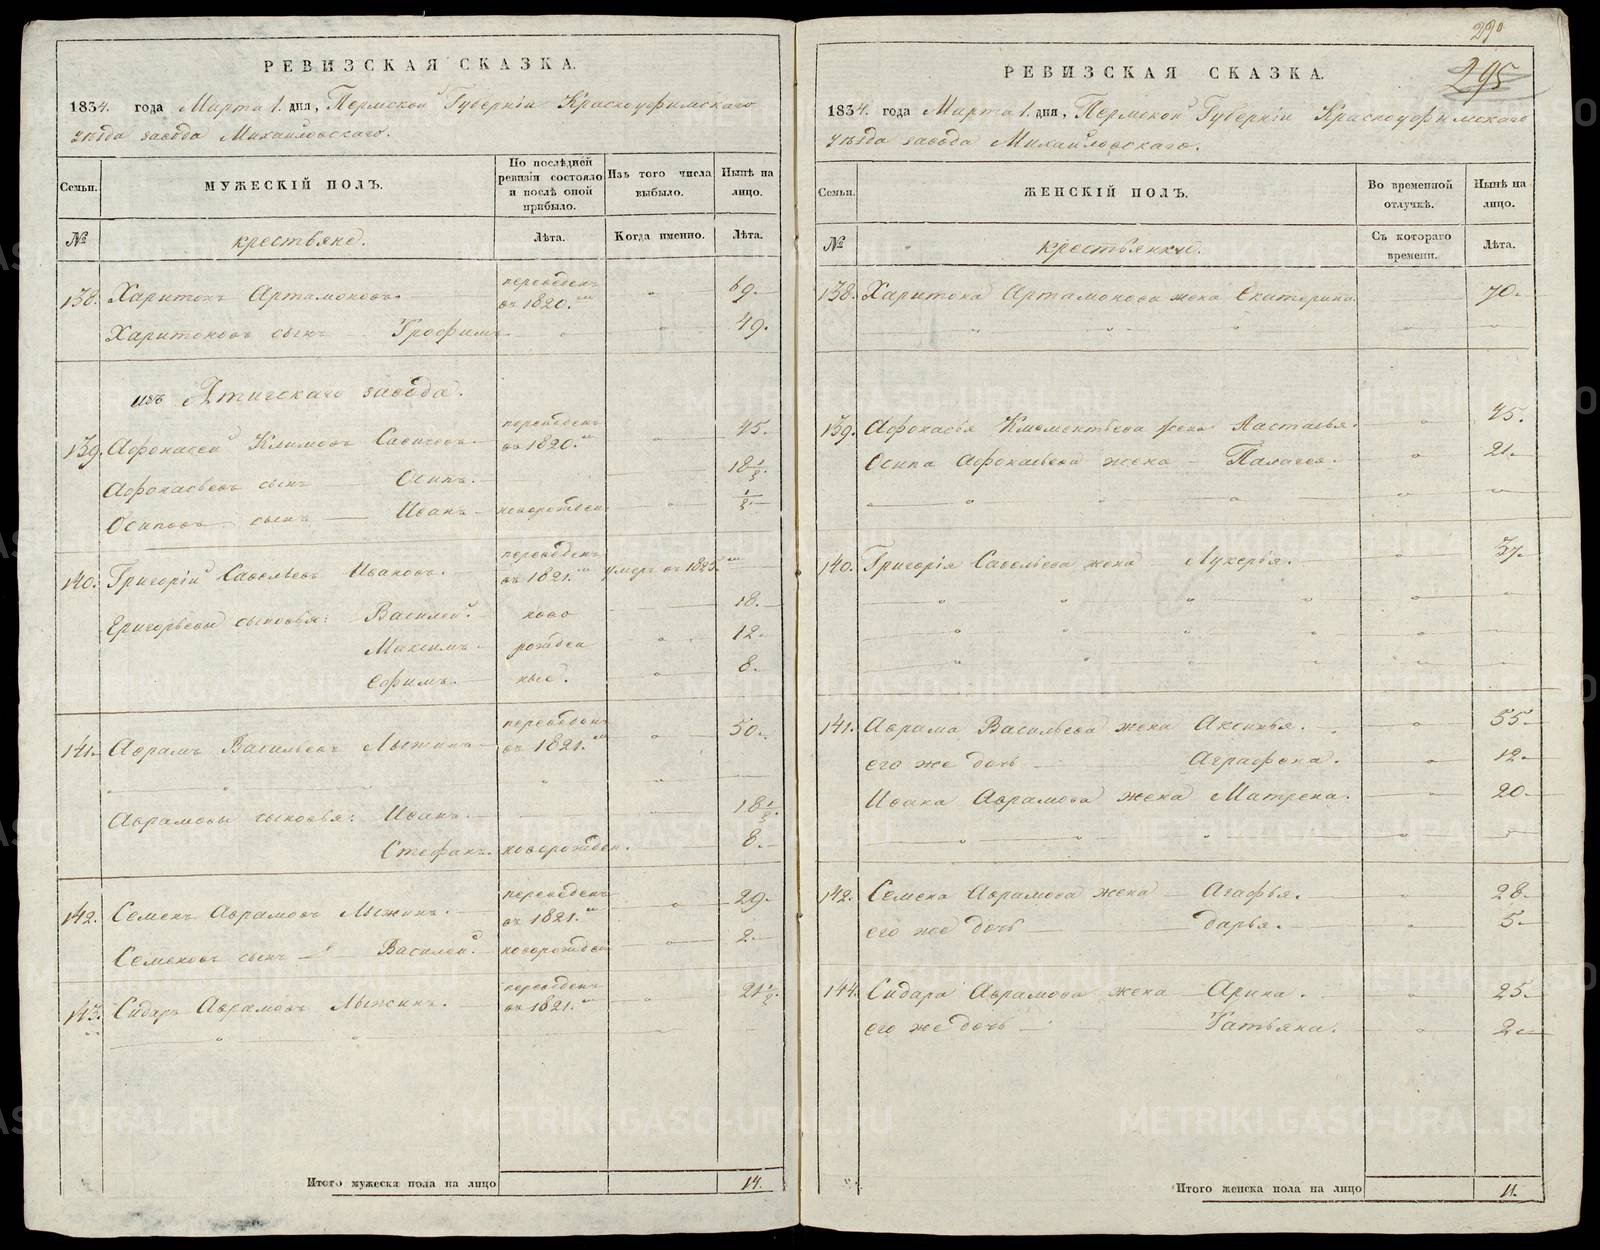 РЕВИЗСКАЯ СКАЗКА.
1834. года Марта 1. дня, Пермской Губернiи Красноуфимскаго
уѣзда завода Михайловскаго.
Семьи.
МУЖЕСКIЙ ПОЛЪ.
По послѣдней ревизiи состояло и послѣ оной прибыло.
Изъ того числа выбыло.
Нынѣ на лицо.
№
крестьяне.
Лѣта.
Когда именно.
Лѣта.
138. Харитонъ Артамоновъ переведенъ въ 1820. 69.
Харитоновъ сынъ Трофимъ 49.
изъ Атигскаго завода.
139. Афонасей Климовъ переведенъ въ 1820. 45.
Афонасьевъ сынъ Осипъ. 18 1/2.
Осиповъ сынъ Иванъ новорожден. 1/2.
140. Григорiй Савельевъ Ивановъ. переведенъ въ 1821. умеръ въ 1825.
Григорьевы сыновья: Василей. ново 18.
Максимъ. рожден 12.
Ефимъ. ные. 8.
141. Аврамъ Васильевъ Лыжинъ переведенъ въ 1821. 50.
Аврамовы сыновья: Иванъ. 18 1/2.
Стефанъ. новорожден. 8.
142. Семенъ Аврамовъ Лыжинъ. переведенъ въ 1821. 29.
Семеновъ сынъ Василей. новорожден 2.
143. Сидоръ Аврамовъ Лыжинъ. переведенъ въ 1821. 21 1/2.
Итого мужеска пола на лицо 14.
290
295
РЕВИЗСКАЯ СКАЗКА.
1834. года Марта 1. дня, Пермской Губернiи Красноуфимскаго
уѣзда завода Михайловскаго.
Семьи.
ЖЕНСКIЙ ПОЛЪ.
Во временной отлучкѣ.
Нынѣ на лицо.
№
крестьянки.
Съ котораго времени.
Лѣта.
138. Харитона Артамонова жена Екатерина 70.
139. Афонасья Клементьева жена Настасья. 45.
Осипа Афонасьева жена Палагея. 21.
140. Григорiя Савельева жена Лукерья. 37.
141. Аврама Васильева жена Аксинья. 55.
его же дочь Аграфена. 12.
Ивана Аврамова жена Матрена. 20.
142. Семена Аврамова жена Агафья. 28.
его же дочь Дарья. 5.
144. Сидара Аврамова жена Арина. 25.
его же дочь Татьяна. 2.
Итого женска пола на лицо 11.
METRIKI.GASO-URAL.RU